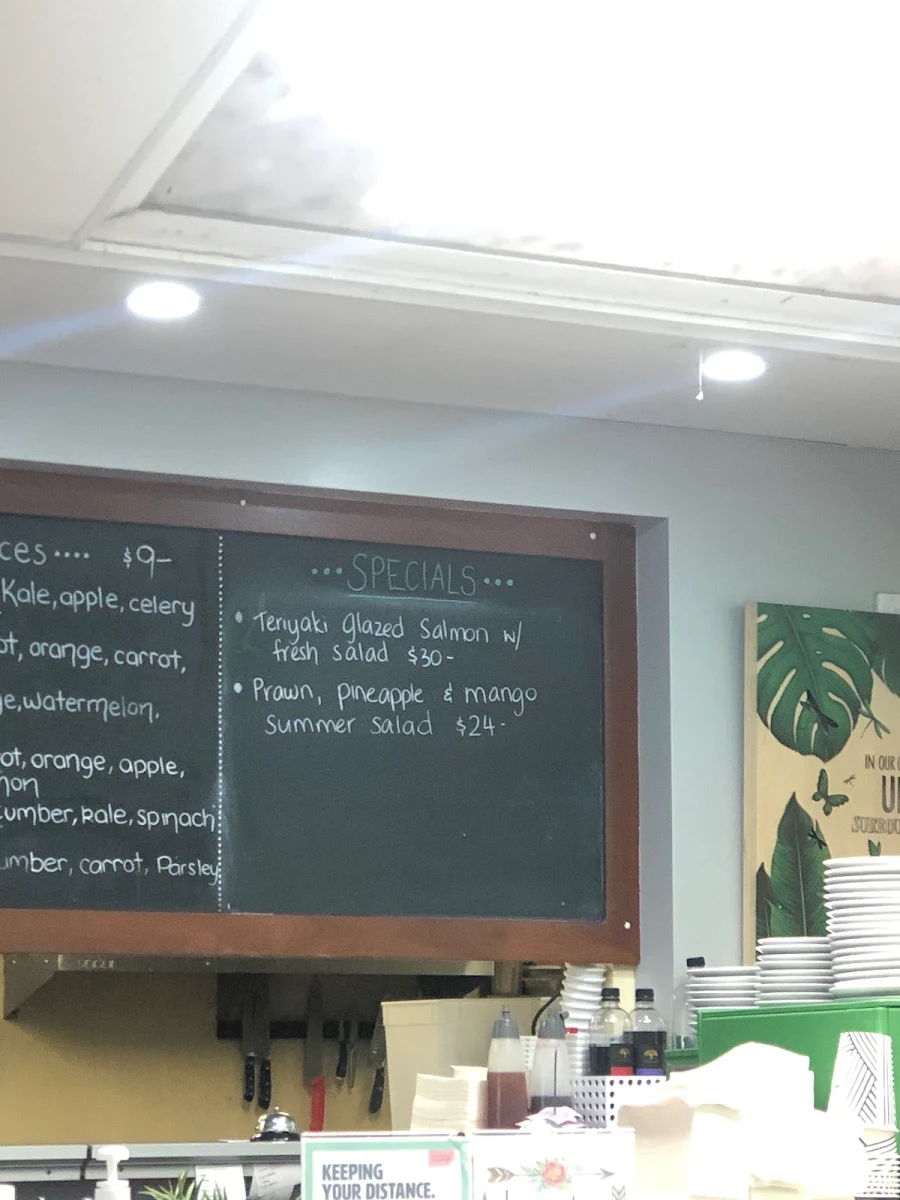 ces.... $9-
Kale, apple, celery
ot, orange, carrot,
e, watermelon,
ot, orange, apple,
non
cumber, kale, spinach
umber, carrot, Parsley
...SPECIALS...
• Teriyaki glazed Salmon w/
fresh salad $30-
• Prawn, pineapple & mango
summer salad $24-
IN OUR
KEEPING
YOUR DISTANCE.